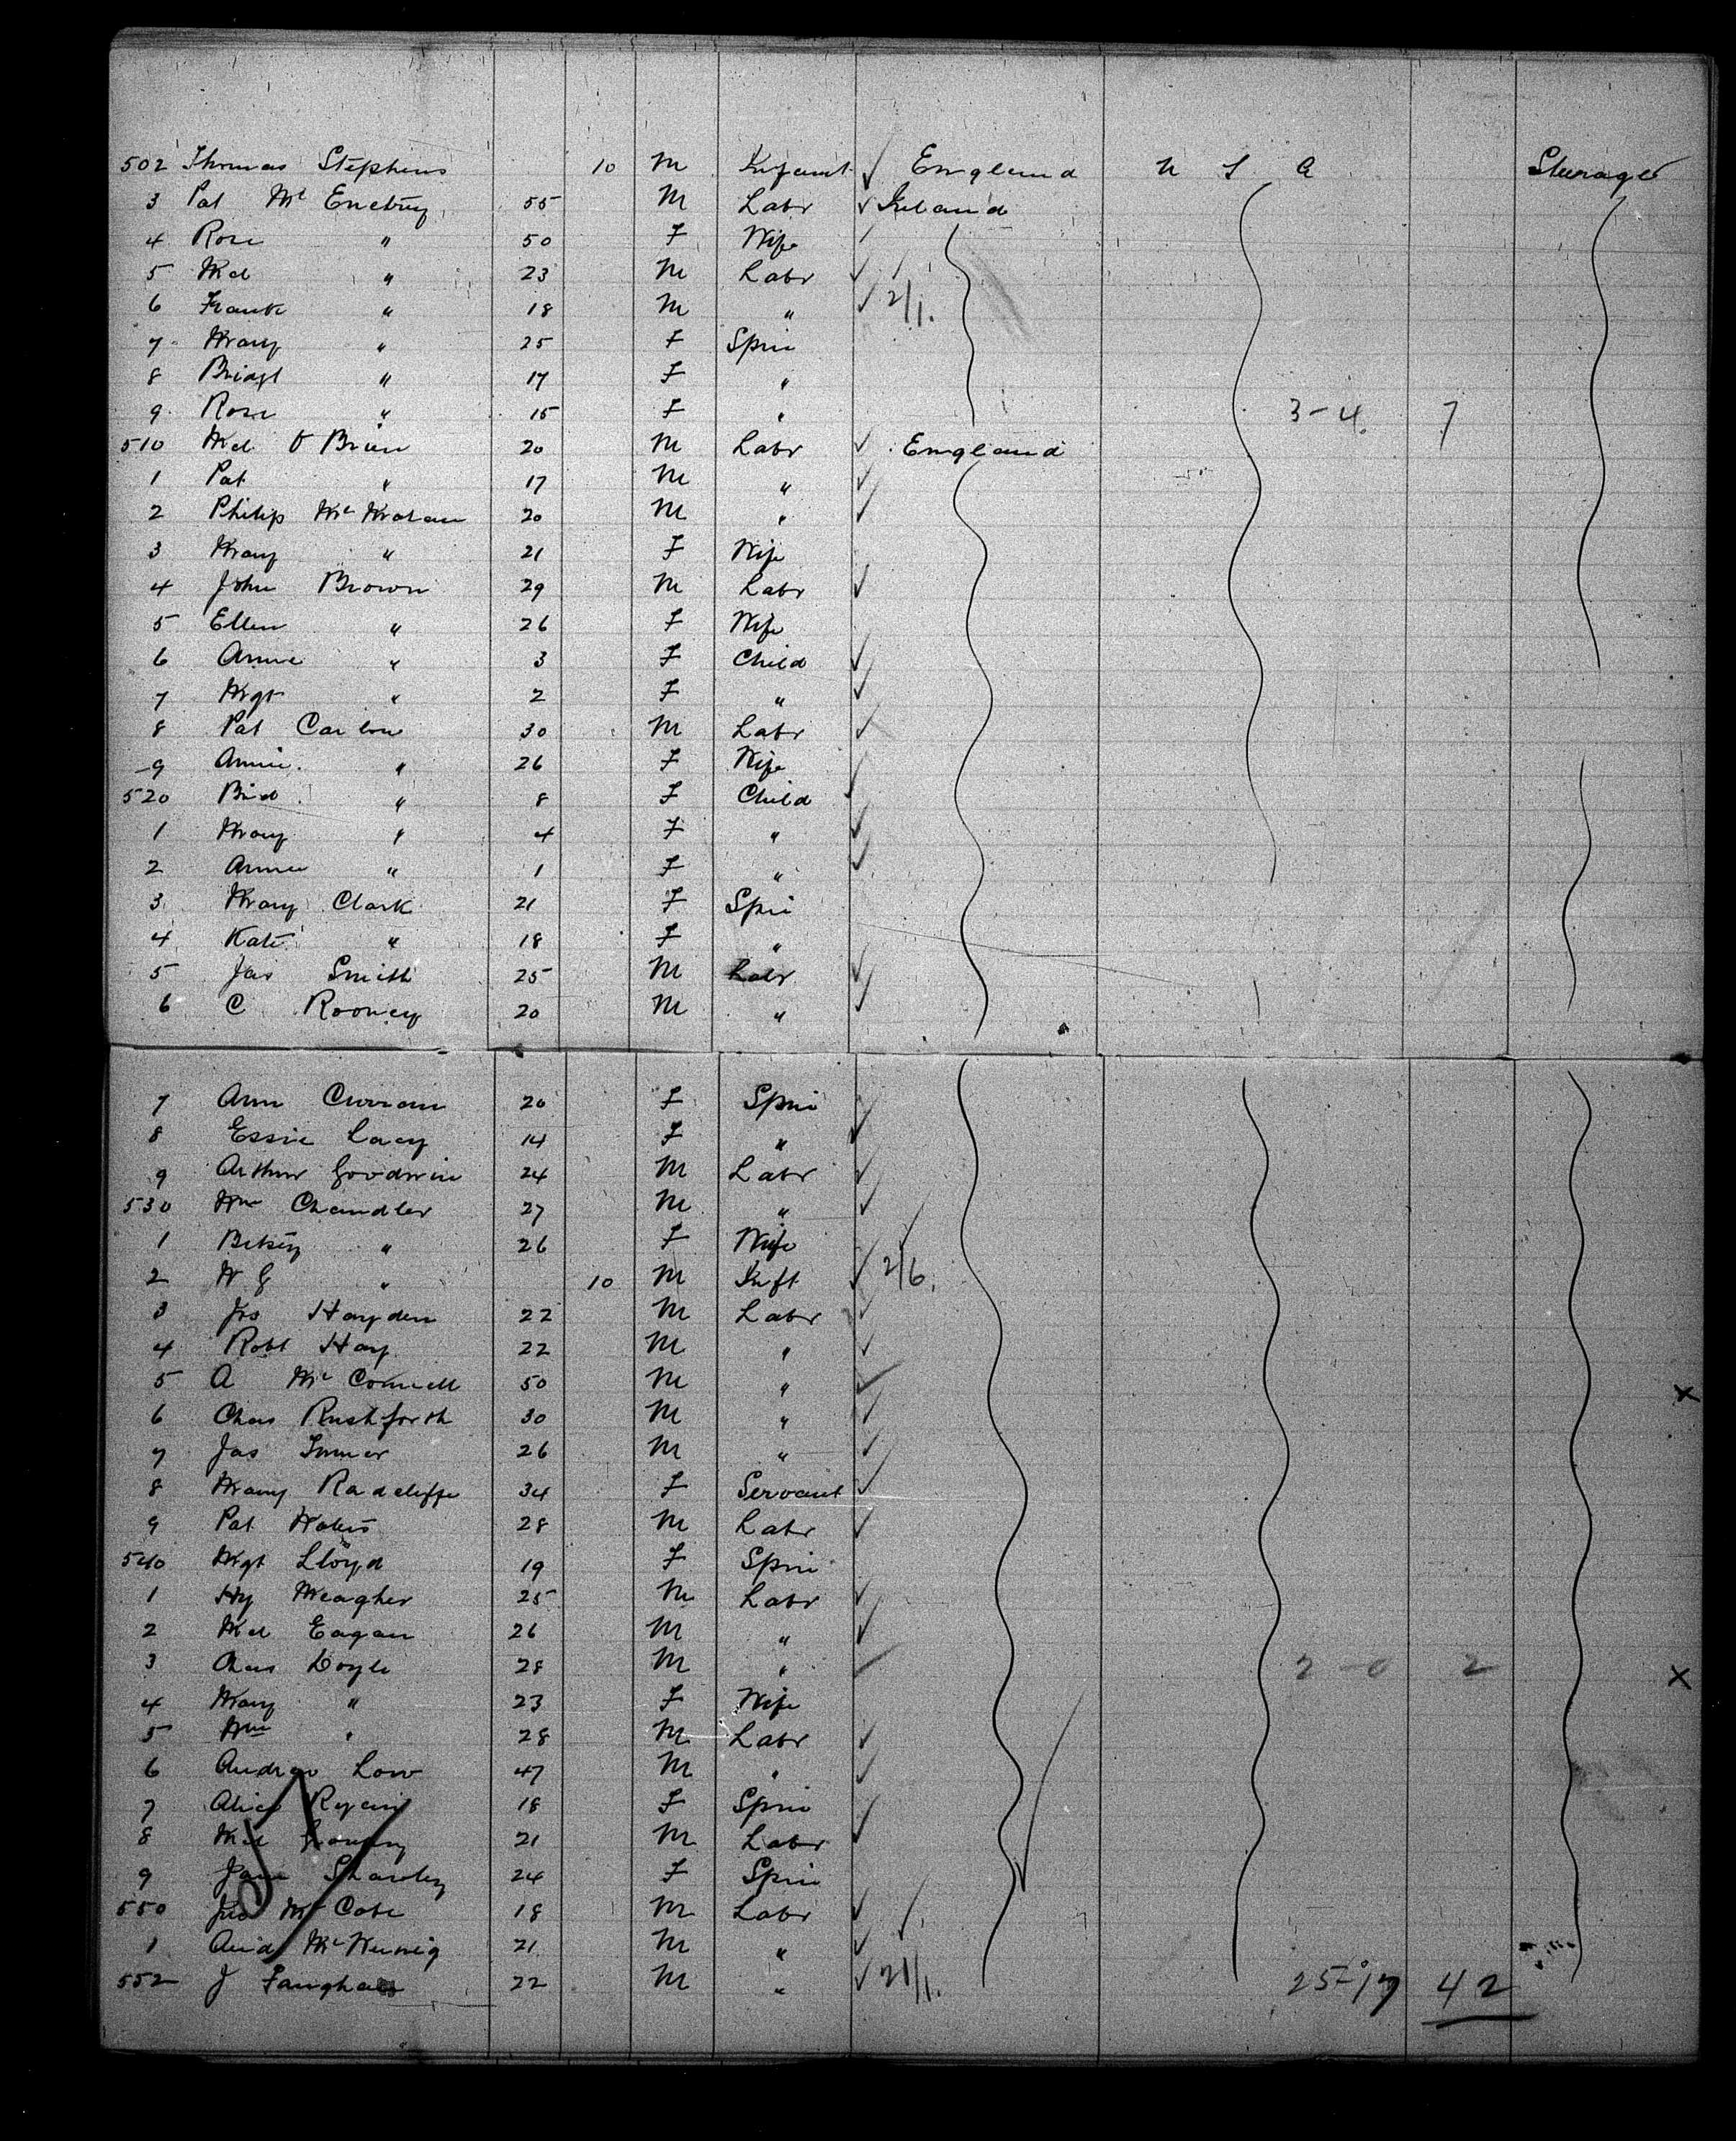 502 Thomas Stephens 10 M Infant ✓ England U S A Steerage
3 Pat Mc 55 M Labr ✓ Ireland
4 Rose " 50 F Wife
5 Mcl " 23 M Labr ✓
6 Frank " 18 M " ✓ 2/1.
7 Mary " 25 F Spin
8 Bridgt " 17 F "
9 Rose " 15 F " 3-4. 7
510 Mcl O'Brien 20 M Labr ✓ England
1 Pat " 17 M " ✓
2 Philip McMahon 20 M " ✓
3 Mary " 21 F Wife
4 John Brown 29 M Labr ✓
5 Ellen " 26 F Wife
6 Annie " 3 F Child ✓
7 Mgt " 2 F " ✓
8 Pat 30 M Labr ✓
9 Annie " 26 F Wife
520 Brid " 8 F Child ✓
1 Mary " 4 F " ✓
2 Annie " 1 F " ✓
3 Mary Clark 21 F Spin
4 Kate " 18 F "
5 Jas Smith 25 M Labr ✓
6 C Rooney 20 M " ✓
7 Ann Curran 20 F Spin ✓
8 Essie Lacy 14 F " ✓
9 Arthur Goodwin 24 M Labr ✓
530 Wm Chandler 27 M " ✓
1 Betsey " 26 F Wife ✓
2 W G " 10 M Inft ✓ 2/6.
3 Jno Hayden 22 M Labr ✓
4 Robt Hay 22 M " ✓
5 A McConnell 50 M " ✓ x
6 Chas Rushforth 30 M " ✓
7 Jas 26 M " ✓
8 Mary Radcliffe 34 F Servant ✓
9 Pat 28 M Labr ✓
540 Mgt Lloyd 19 F Spin
1 Hy Meagher 25 M Labr ✓
2 Mcl Eagan 26 M " ✓
3 Chas Doyle 28 M " ✓ 2-0 2 x
4 Mary " 23 F Wife
5 Wm " 28 M Labr ✓
6 Andrew Low 47 M " ✓
7 Alice Ryan 18 F Spin ✓
8 Mcl 21 M Labr ✓
9 Jane 24 F Spin
550 Jno McCabe 18 M Labr ✓
1 21 M " ✓
552 J 22 M " ✓ 21/1. 25-17 42